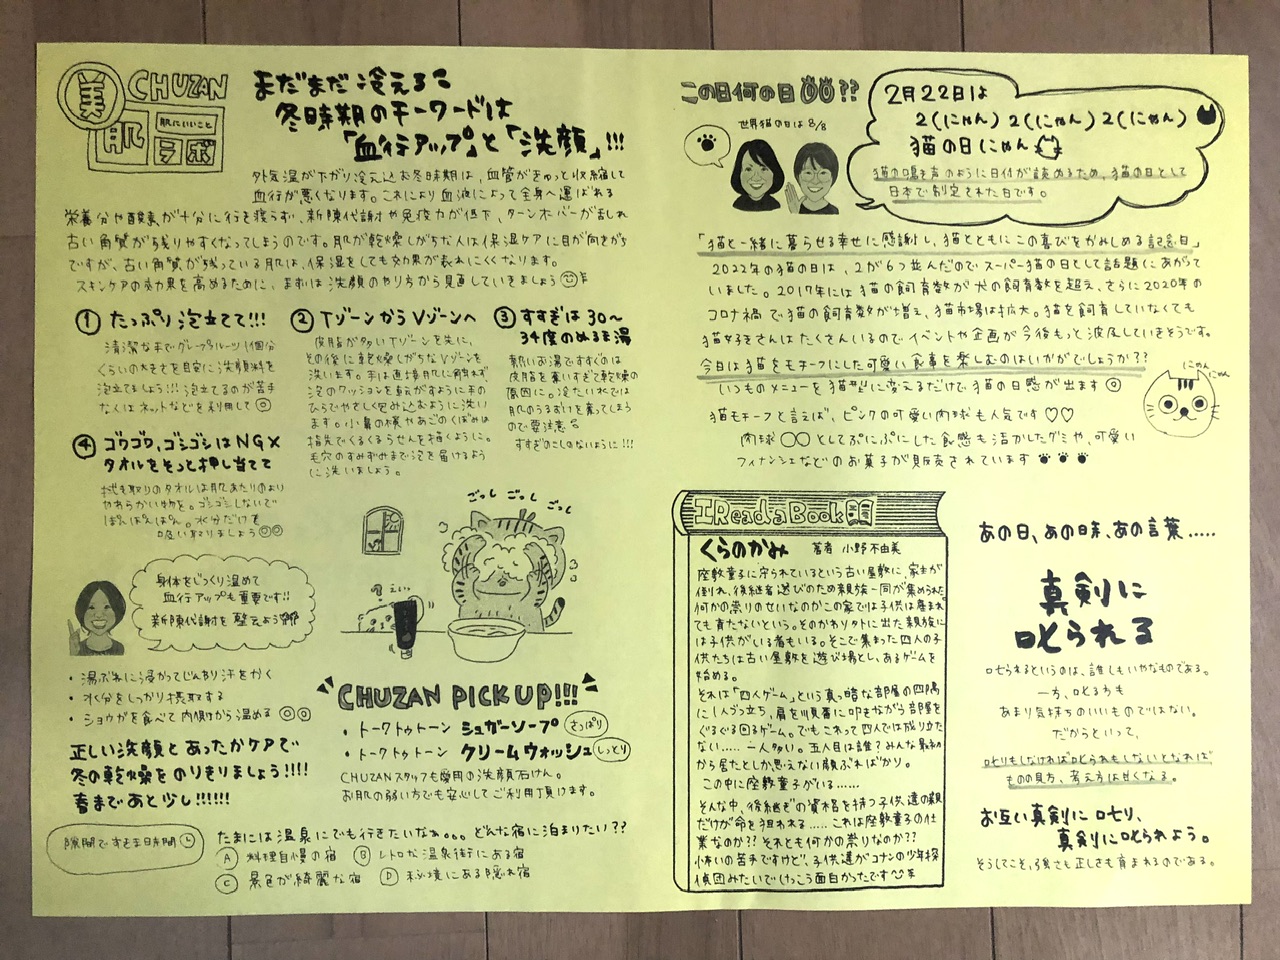 美肌
CHUZAN
肌にいいこと
ラボ
まだまだ冷えるこ
冬時期のキーワードは
「血行アップ」と「洗顔」!!!
外気温が下がり冷え込む冬時期は、血管がきゅっと収縮して
血行が悪くなります。これにより血液によって全身へ運ばれる
栄養分や酸素が十分に行き渡らず、新陳代謝や免疫力が低下、ターンオーバーが乱れ
古い角質が残りやすくなってしまうのです。肌が乾燥しがちな人は保湿ケアに目が向きがち
ですが、古い角質が残っている肌は、保湿をしても効果が表れにくくなります。
スキンケアの効果を高めるために、まずは洗顔のやり方から見直していきましょう
① たっぷり泡立てて!!!
清潔な手でグレープフルーツ1個分
くらいの大きさを目安に洗顔料を
泡立てましょう!!! 泡立てるのが苦手
なくはネットなどを利用して◎
② TゾーンからVゾーンへ
皮脂が多いTゾーンを先に、
その後に乾燥しがちなVゾーンを
洗います。手は直接肌に触れず
泡のクッションを転がすように手の
ひらでやさしく包み込むように洗い
ます。小鼻の横やあごのくぼみは
指先でくるくるらせんを描くように。
毛穴のすみずみまで泡を届けるよう
に洗いましょう。
③ すすぎは30~
34度のぬるま湯
熱いお湯ですすぐのは
皮脂を奪いすぎて乾燥の
原因に。冷たい水では
肌のうるおいを奪ってしまう
ので要注意
すすぎのこしのないように!!!
④ ゴワゴワ、ゴシゴシはNG×
タオルをそっと押し当てて
拭き取りのタオルは肌あたりのより
やわらかい物を。ゴシゴシしないで
ぽんぽんぽん。水分だけを
吸い取りましょう◎◎
ごっし ごっし ごっし
え…
身体をじっくり温めて
血行アップも重要です!!
新陳代謝を整えよう
・湯ぶねに浸かってじんわり汗をかく
・水分をしっかり摂取する
・ショウガを食べて内側から温める◎◎
正しい洗顔とあったかケアで
冬の乾燥をのりきりましょう!!!!
春まであと少し!!!!!!
CHUZAN PICK UP!!!
・トークトゥトーン シュガーソープ さっぱり
・トークトゥトーン クリームウォッシュ しっとり
CHUZANスタッフも愛用の洗顔石けん。
お肌の弱い方でも安心してご利用頂けます。
隙間ですきま日本間
たまには温泉にでも行きたいなぁ。。。どんな宿に泊まりたい??
Ⓐ 料理自慢の宿 Ⓑ レトロな温泉街にある宿
Ⓒ 景色が綺麗な宿 Ⓓ 秘境にある隠れ宿
この日何の日??
世界猫の日は8/8
2月22日は
2(にゃん) 2(にゃん) 2(にゃん)
猫の日にゃん
猫の鳴き声のように日付が読めるため、猫の日として
日本で制定された日です。
「猫と一緒に暮らせる幸せに感謝し、猫とともにこの喜びをかみしめる記念日」
2022年の猫の日は、2が6つ並んだのでスーパー猫の日として話題にあがって
いました。2017年には猫の飼育数が犬の飼育数を超え、さらに2020年の
コロナ禍で猫の飼育数が増え、猫市場は拡大。猫を飼育していなくても
猫好きさんはたくさんいるのでイベントや企画が今後もっと波及していきそうです。
今日は猫をモチーフにした可愛い食事を楽しむのはいかがでしょうか??
いつものメニューを猫型に変えるだけで猫の日感が出ます◎
にゃん にゃん
猫モチーフと言えば、ピンクの可愛い肉球も人気です♡♡
肉球○○としてぷにぷにした食感も活かしたグミや、可愛い
フィナンシェなどのお菓子が販売されています
I Read a Book
くらのかみ 著者 小野不由美
座敷童子に守られているという古い屋敷に、家主が
倒れ、後継者選びのため親族一同が集められた。
何かの祟りのせいなのかこの家では子供は産まれ
ても育たないという。そのかわり外に出た親族に
は子供がいる者もいる。そこで集まった四人の子
供たちは古い屋敷を遊び場とし、あるゲームを
始める。
それは「四人ゲーム」という真っ暗な部屋の四隅
に1人づつ立ち、肩を順番に叩きながら部屋を
ぐるぐる回るゲーム。でもこれって四人では成り立た
ない……一人多い。五人目は誰?みんな最初
から居たとしか思えない顔ぶればかり。
この中に座敷童子がいる……
そんな中、後継ぎの資格を持つ子供達の親
だけが命を狙われる……これは座敷童子の仕
業なのか??それとも何かの祟りなのか??
怖いの苦手ですけど、子供達がコナンの少年探
偵団みたいでけっこう面白かったです
あの日、あの時、あの言葉……
真剣に
叱られる
叱られるというのは、誰しもいやなものである。
一方、叱る方も
あまり気持ちのいいものではない。
だからといって、
叱りもしなければ叱られもしないとなれば、
ものの見方、考え方は甘くなる。
お互い真剣に叱り、
真剣に叱られよう。
そうしてこそ、強さも正しさも育まれるのである。